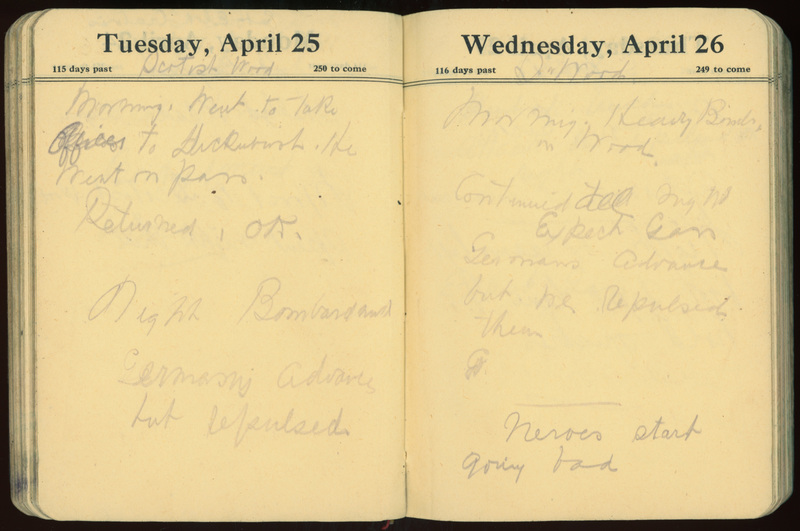 Tuesday, April 25
115 days past
250 to come
Wood
Morning. Went to take
to he
Went on pass.
Returned, OK.
Night Bombardment
Germans advance
but repulsed
Wednesday, April 26
116 days past
249 to come
Wood
Morning. Heavy Bomb.
in Wood.
Continued till night
Expect Gas
Germans advance
but we repulsed
them
Nerves start
going bad